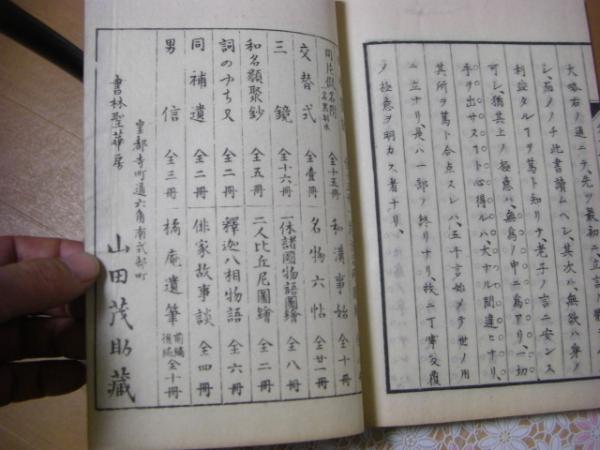 大畧右ノ通ニテ、先ツ最初ニ、此心得ヲ
シ、而ノチ此書讀ムヘシ、其次ハ、無欲ハ身ノ
利益タル丁ヲ篤ト知リテ、老子ノ言ニ安ンス
可シ、猶其上ノ極意ハ、無爲ノ中ニ爲アリ、一切
手ヲ出サヌ丁ト心得ルハ、大ナル間違ヒナリ、
其所ヲ篤ト合点スレハ、五千言始メテ世ノ用
ニ立ナリ、是ハ一部ノ終リナリ、故ニ丁寧反覆
ノ極意ヲ明カス者ナリ、
全十五冊
和漢事始 全十冊
交替式 全壹冊
名物六帖 全廿一冊
三鏡 全十六冊
一休諸國物語圖繪 全八冊
和名類聚鈔 全五冊
二人比丘尼圖繪 全二冊
詞のやちまた 全二冊
釋迦八相物語 全六冊
同補遺 全二冊
俳家故事談 全四冊
男信 全三冊
橘庵遺筆 前編後編 全十冊
皇都寺町通六角南式部町
書林聖華房 山田茂助藏